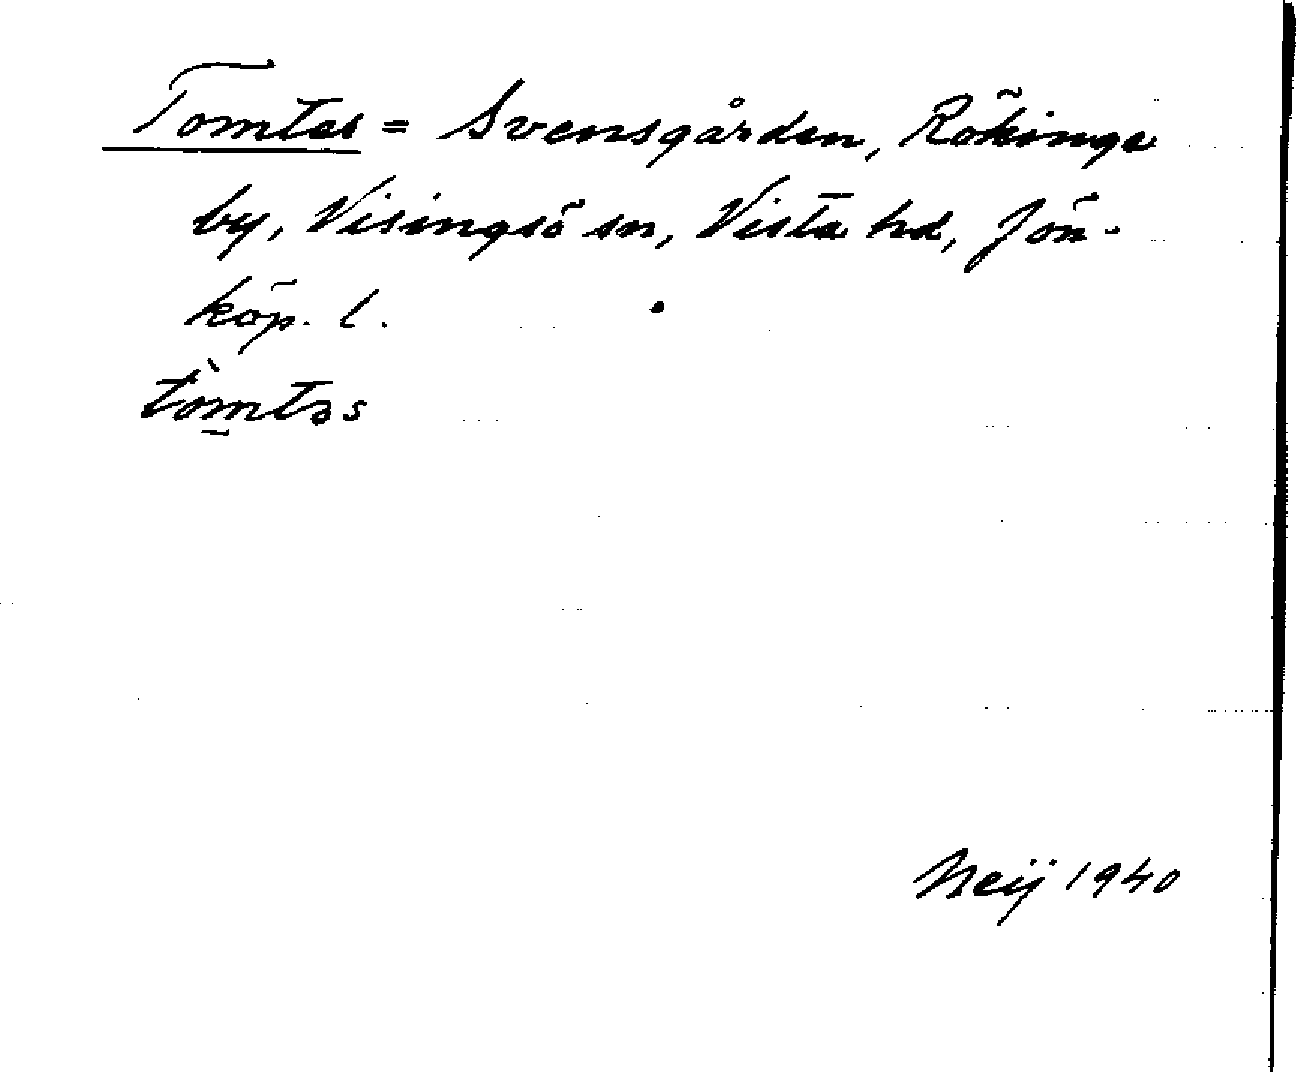 Tomtes = Svensgården, Rökinge
by, Visingsö sn, Vista hd, Jön-
köp. l.
tòmtəs
Neij 1940